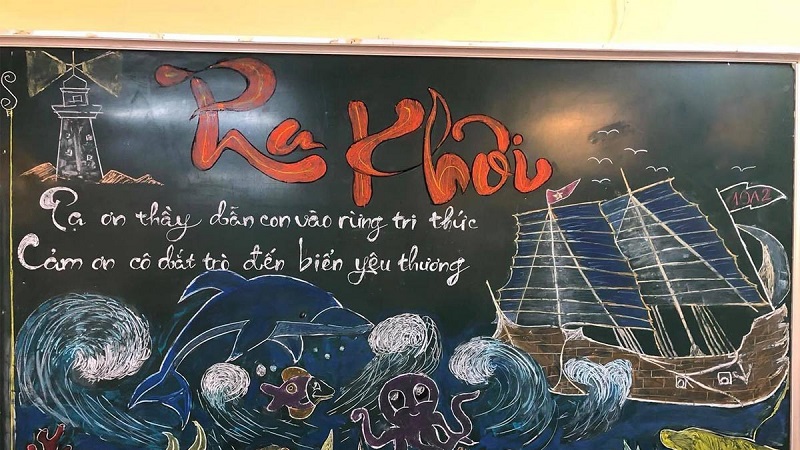 Ra Khơi
Tạ ơn thầy dẫn con vào rừng tri thức
Cảm ơn cô dắt trò đến biển yêu thương
10A2